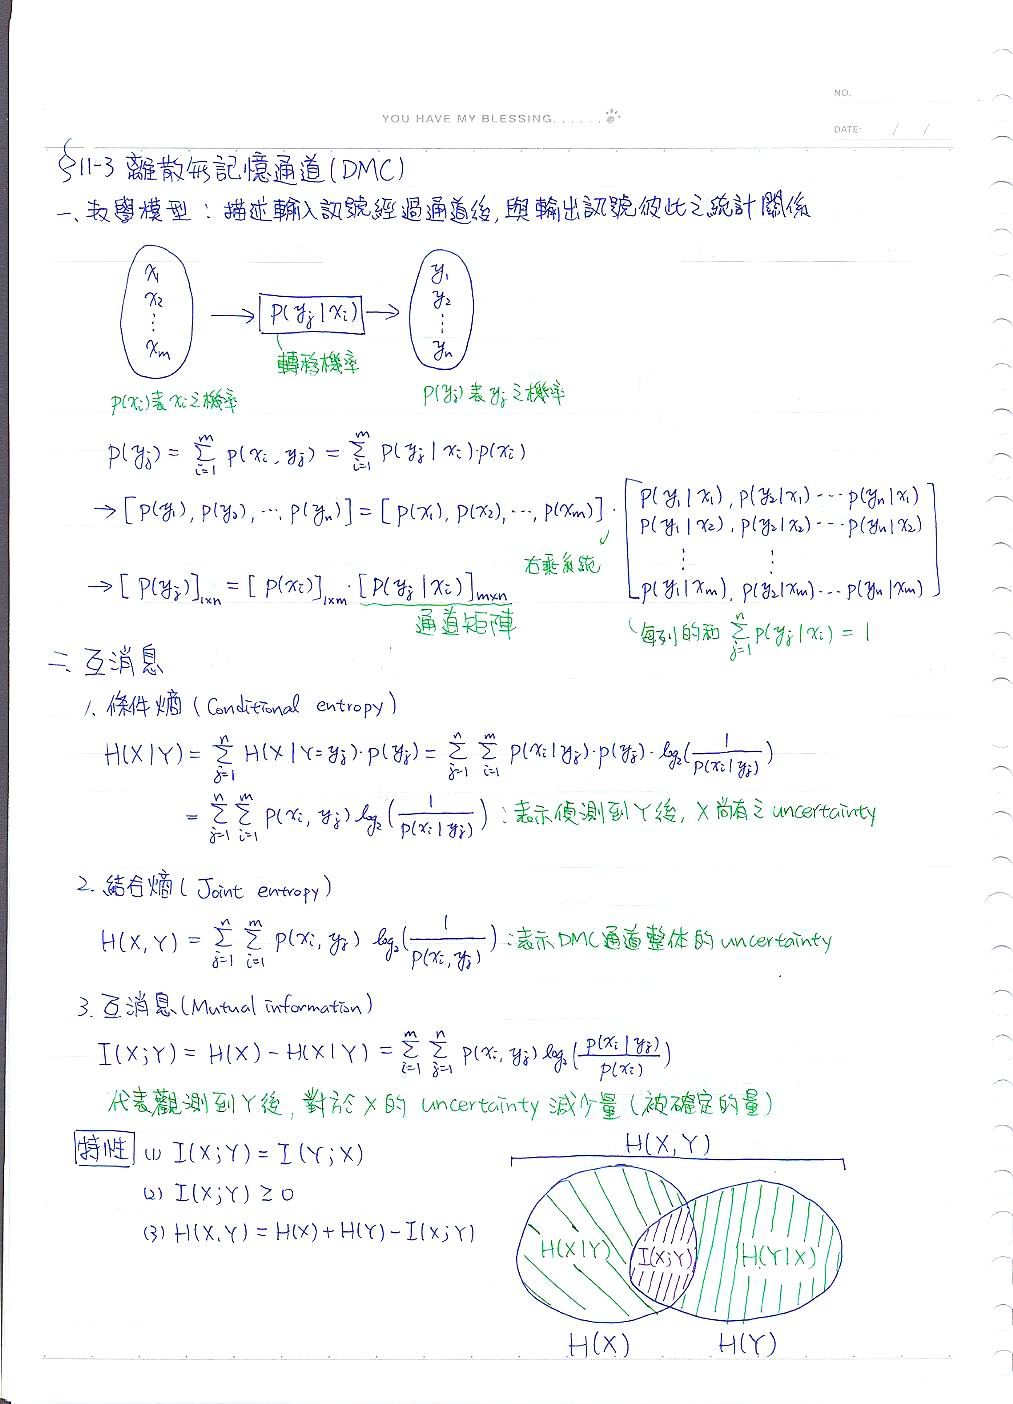 NO.
YOU HAVE MY BLESSING......
DATE: / /
§11-3 離散無記憶通道(DMC)
一、教學模型：描述輸入訊號經過通道後,與輸出訊號彼此之統計關係
x₁
x₂
⋮
xₘ
P(yⱼ|xᵢ)
轉移機率
y₁
y₂
⋮
yₙ
P(xᵢ)表xᵢ之機率
P(yⱼ)表yⱼ之機率
P(yⱼ) = Σᵢ₌₁ᵐ P(xᵢ, yⱼ) = Σᵢ₌₁ᵐ P(yⱼ|xᵢ)·P(xᵢ)
→ [P(y₁), P(y₂), ⋯, P(yₙ)] = [P(x₁), P(x₂), ⋯, P(xₘ)] ·
P(y₁|x₁), P(y₂|x₁) ⋯ P(yₙ|x₁)
P(y₁|x₂), P(y₂|x₂) ⋯ P(yₙ|x₂)
⋮ ⋮
P(y₁|xₘ), P(y₂|xₘ) ⋯ P(yₙ|xₘ)
右乘系統
→ [P(yⱼ)]₁ₓₙ = [P(xᵢ)]₁ₓₘ · [P(yⱼ|xᵢ)]ₘₓₙ
通道矩陣
每列的和 Σⱼ₌₁ⁿ P(yⱼ|xᵢ) = 1
二、互消息
1. 條件熵(Conditional entropy)
H(X|Y) = Σⱼ₌₁ⁿ H(X|Y=yⱼ)·P(yⱼ) = Σⱼ₌₁ⁿ Σᵢ₌₁ᵐ P(xᵢ|yⱼ)·P(yⱼ)·log₂(1/P(xᵢ|yⱼ))
= Σⱼ₌₁ⁿ Σᵢ₌₁ᵐ P(xᵢ, yⱼ) log₂(1/P(xᵢ|yⱼ)) : 表示偵測到Y後, X尚有之uncertainty
2. 結合熵(Joint entropy)
H(X,Y) = Σⱼ₌₁ⁿ Σᵢ₌₁ᵐ P(xᵢ, yⱼ) log₂(1/P(xᵢ, yⱼ)) : 表示DMC通道整体的uncertainty
3. 互消息(Mutual information)
I(X;Y) = H(X) - H(X|Y) = Σᵢ₌₁ᵐ Σⱼ₌₁ⁿ P(xᵢ, yⱼ) log₂(P(xᵢ|yⱼ)/P(xᵢ))
代表觀測到Y後, 對於X的 uncertainty 減少量(被確定的量)
特性 (1) I(X;Y) = I(Y;X)
(2) I(X;Y) ≥ 0
(3) H(X,Y) = H(X) + H(Y) - I(X;Y)
H(X,Y)
H(X|Y) I(X;Y) H(Y|X)
H(X) H(Y)